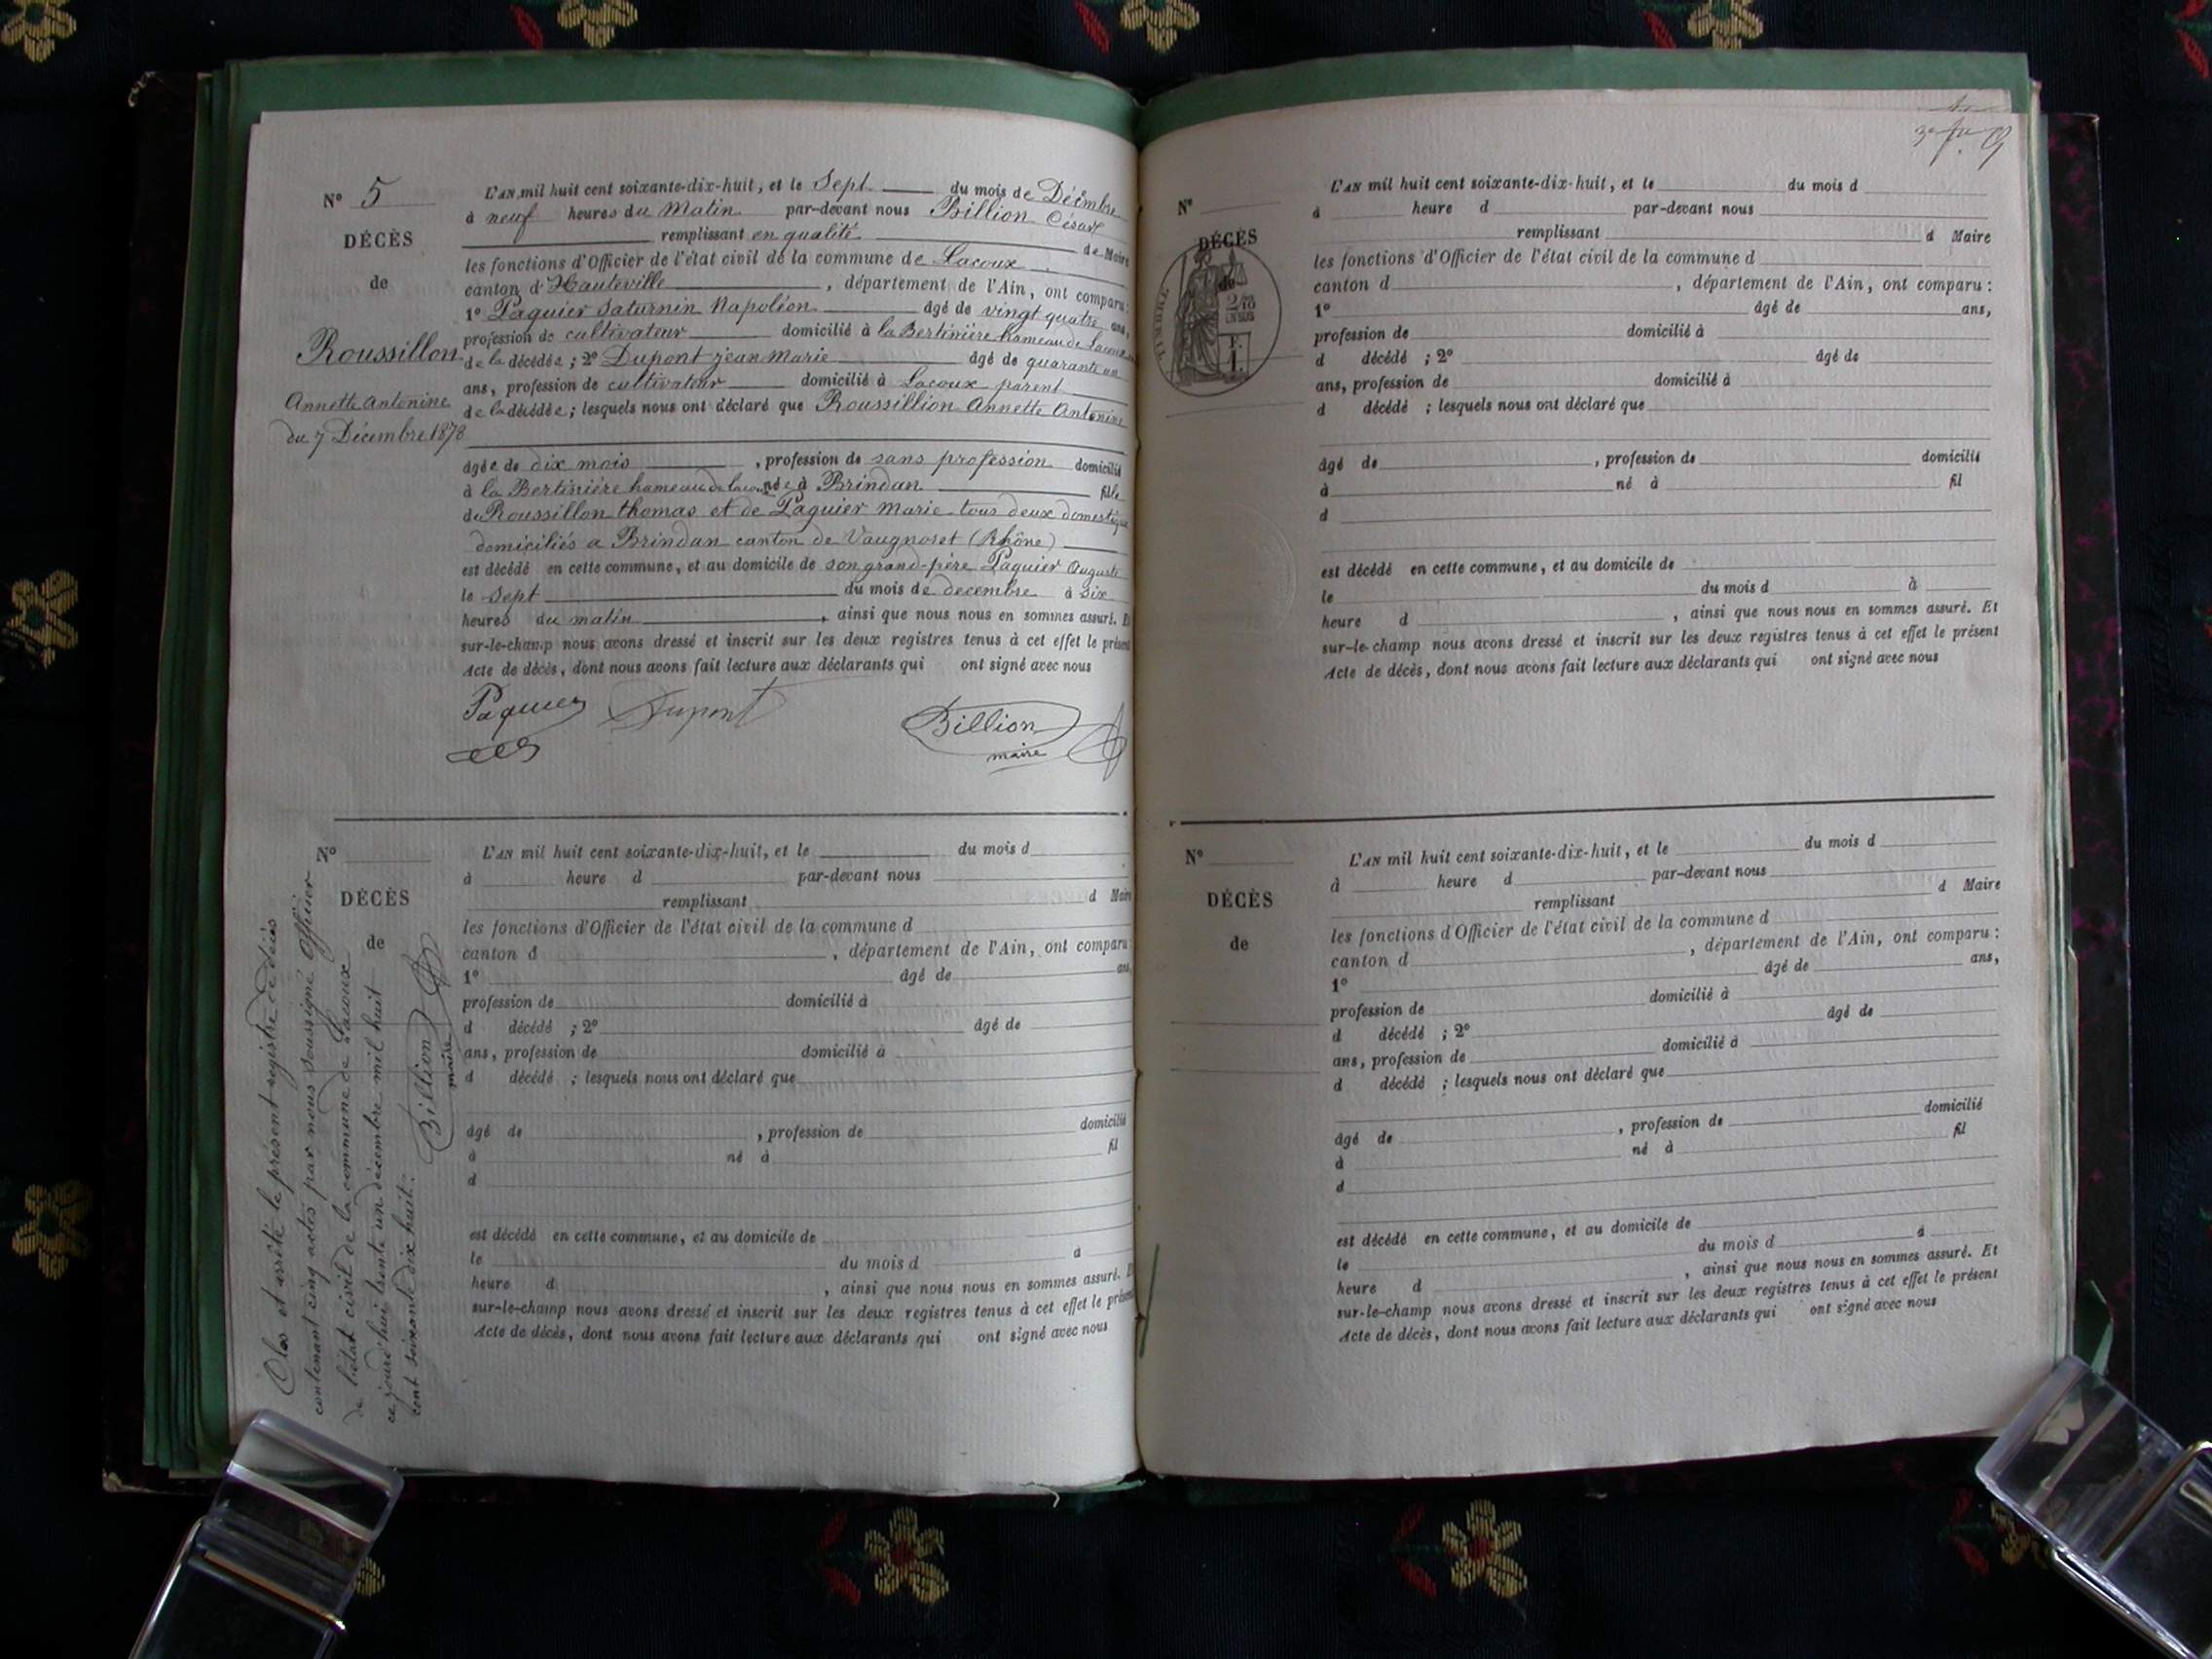 N° 5
DÉCÈS
de
Roussillon
Annette Antonine
du 7 Décembre 1878
L'AN mil huit cent soixante-dix-huit, et le Sept du mois de Décembre
à neuf heures du Matin par-devant nous Billion César
remplissant en qualité de Maire
les fonctions d'Officier de l'état civil de la commune de Lacoux
canton d'Hauteville, département de l'Ain, ont comparu :
1° Paquier Saturnin Napoléon âgé de vingt quatre ans,
profession de cultivateur domicilié à la Bertinière hameau de Lacoux
de la décédée ; 2° Dupont jean Marie âgé de quarante un
ans, profession de cultivateur domicilié à Lacoux parent
de la décédée ; lesquels nous ont déclaré que Roussillion Annette Antonine
âgée de dix mois, profession de sans profession domicilié
à la Bertinière hameau de lacoux née à Brindan fille
de Roussillon thomas et de Paquier Marie tous deux domestique
domiciliés a Brindan canton de Vaugnoret (Rhône)
est décédé en cette commune, et au domicile de son grand-père Paquier Auguste
le Sept du mois de decembre à six
heures du matin, ainsi que nous nous en sommes assuré. E
sur-le-champ nous avons dressé et inscrit sur les deux registres tenus à cet effet le présent
Acte de décès, dont nous avons fait lecture aux déclarants qui ont signé avec nous
Paquier Dupont Billion
maire
N°
DÉCÈS
de
L'AN mil huit cent soixante-dix-huit, et le du mois d
à heure d par-devant nous
remplissant d Maire
les fonctions d'Officier de l'état civil de la commune d
canton d , département de l'Ain, ont comparu
1° âgé de ans,
profession de domicilié à
d décédé ; 2° âgé de
ans, profession de domicilié à
d décédé ; lesquels nous ont déclaré que
âgé de , profession de domicilié
à né à fil
d
est décédé en cette commune, et au domicile de
le du mois d à
heure d , ainsi que nous nous en sommes assuré. E
sur-le-champ nous avons dressé et inscrit sur les deux registres tenus à cet effet le présent
Acte de décès, dont nous avons fait lecture aux déclarants qui ont signé avec nous
Clos et arrêté le présent registre de décès
contenant cinq actes par nous soussigné Officier
de l'état civil de la commune de Lacoux
ce jourd'hui trente un décembre mil huit
cent soixante dix huit.
Billion
maire
N°
DÉCÈS
de
TIMBRE
2/10
EN SUS
F.
1.
L'AN mil huit cent soixante-dix-huit, et le du mois d
à heure d par-devant nous
remplissant d Maire
les fonctions d'Officier de l'état civil de la commune d
canton d , département de l'Ain, ont comparu :
1° âgé de ans,
profession de domicilié à
d décédé ; 2° âgé de
ans, profession de domicilié à
d décédé ; lesquels nous ont déclaré que
âgé de , profession de domicilié
à né à fil
d
est décédé en cette commune, et au domicile de
le du mois d à
heure d , ainsi que nous nous en sommes assuré. Et
sur-le-champ nous avons dressé et inscrit sur les deux registres tenus à cet effet le présent
Acte de décès, dont nous avons fait lecture aux déclarants qui ont signé avec nous
N°
DÉCÈS
de
L'AN mil huit cent soixante-dix-huit, et le du mois d
à heure d par-devant nous
remplissant d Maire
les fonctions d'Officier de l'état civil de la commune d
canton d , département de l'Ain, ont comparu :
1° âgé de ans,
profession de domicilié à
d décédé ; 2° âgé de
ans, profession de domicilié à
d décédé ; lesquels nous ont déclaré que
âgé de , profession de domicilié
à né à fil
d
est décédé en cette commune, et au domicile de
le du mois d à
heure d , ainsi que nous nous en sommes assuré. Et
sur-le-champ nous avons dressé et inscrit sur les deux registres tenus à cet effet le présent
Acte de décès, dont nous avons fait lecture aux déclarants qui ont signé avec nous